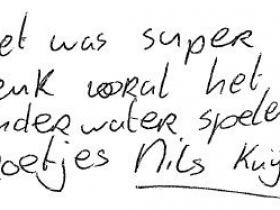 et was super
euk vooral het
nder water spele
oetjes Nils Kuy